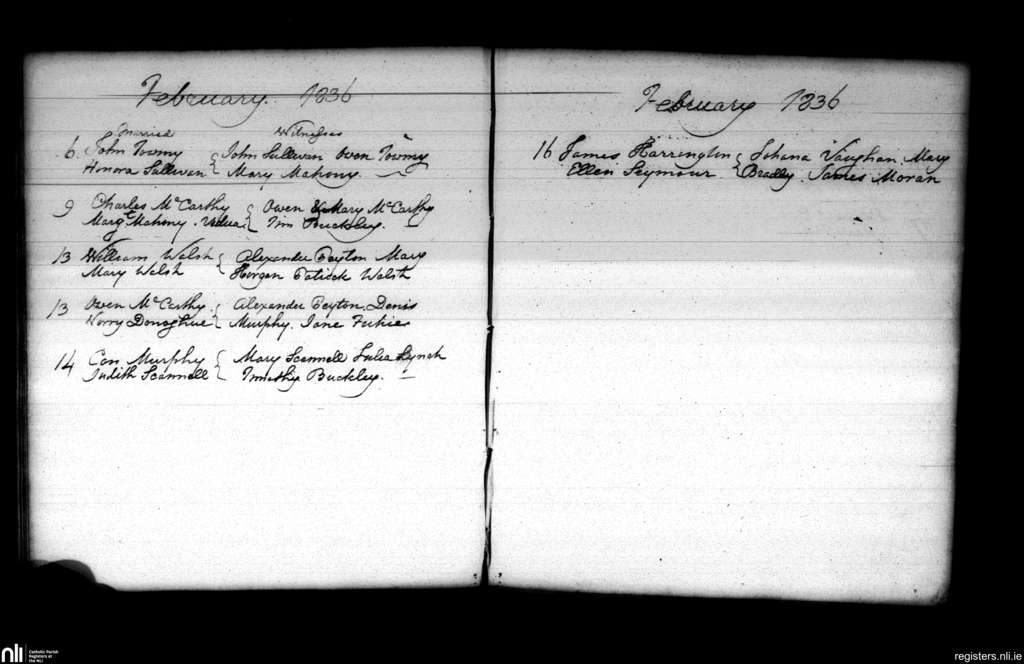 February. 1836
Married Witnesses
6. John Toomy { John Sullivan Owen Toomy
Honora Sullivan { Mary Mahony.
9 Charles McCarthy { Owen & Mary McCarthy
Margt Mahony. Vidua { Tim Buckley.
13 William Welsh { Alexander Peyton Mary
Mary Welsh Horgan Patrick Welsh
13 Owen McCarthy { Alexander Peyton Denis
Norry Donoghue { Murphy. Jane
14 Con Murphy { Mary Scannell Julia Lynch
Judith Scannell { Timothy Buckley.
February 1836
16 James Harrington { Johana Vaughan Mary
Ellen Seymour. { Bradly. James Moran
nli
Catholic Parish
Registers at
the NLI
registers.nli.ie